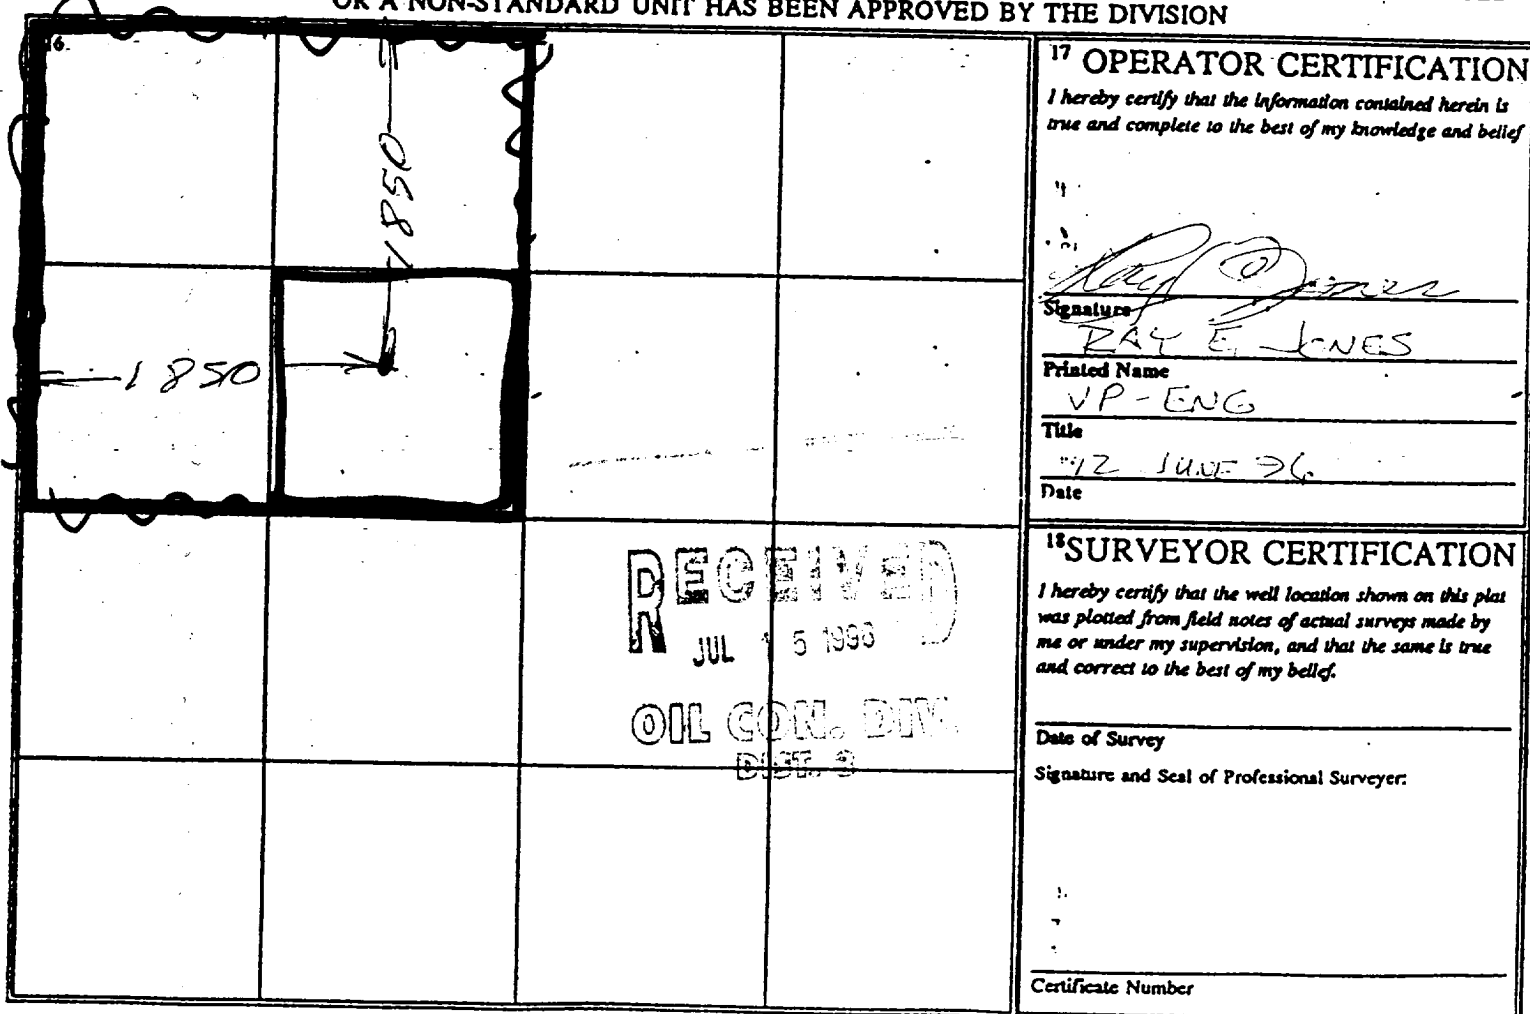 OR A NON-STANDARD UNIT HAS BEEN APPROVED BY THE DIVISION
16
1850
1850
RECEIVED
JUL 15 1996
OIL CON. DIV.
DIST. 3
17 OPERATOR CERTIFICATION
I hereby certify that the information contained herein is
true and complete to the best of my knowledge and belief
Signature
RAY E. JONES
Printed Name
VP-ENG
Title
12 JUNE 96
Date
18 SURVEYOR CERTIFICATION
I hereby certify that the well location shown on this plat
was plotted from field notes of actual surveys made by
me or under my supervision, and that the same is true
and correct to the best of my belief.
Date of Survey
Signature and Seal of Professional Surveyer:
Certificate Number